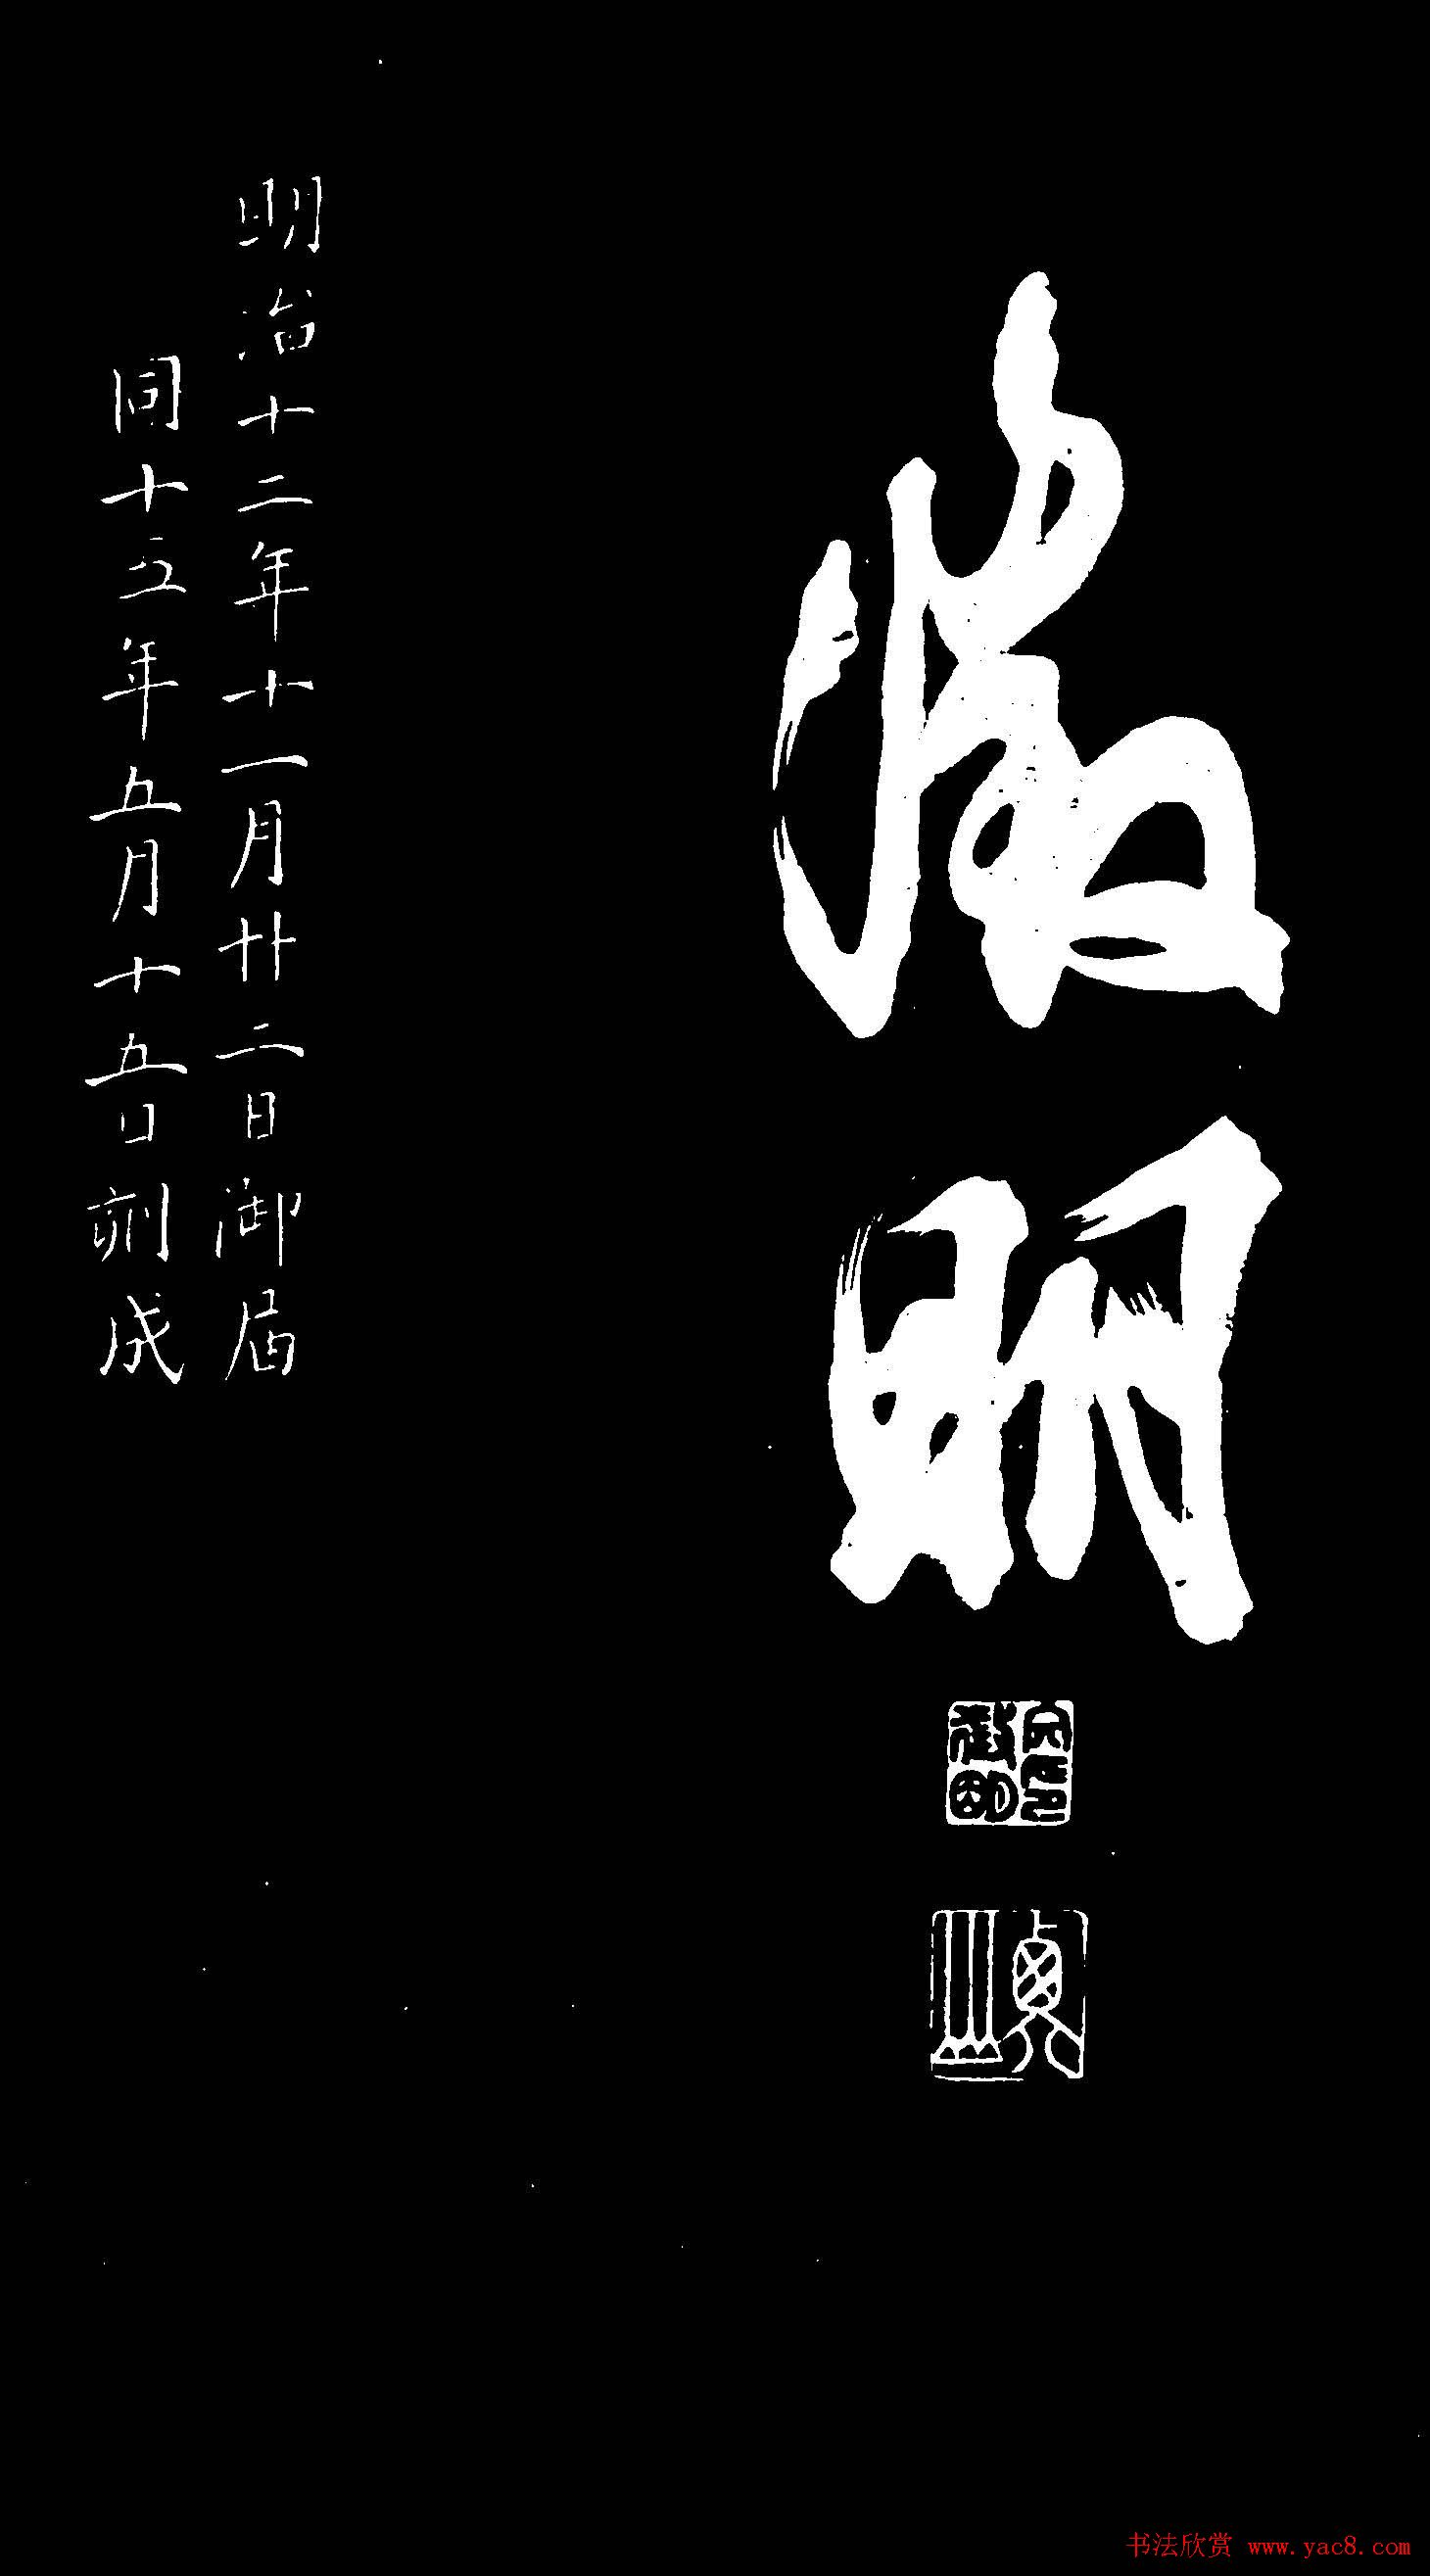 徵明
文徵明印
衡山
明治十二年十一月廿二日御届
同十五年五月十五日刻成
书法欣赏 www.yac8.com